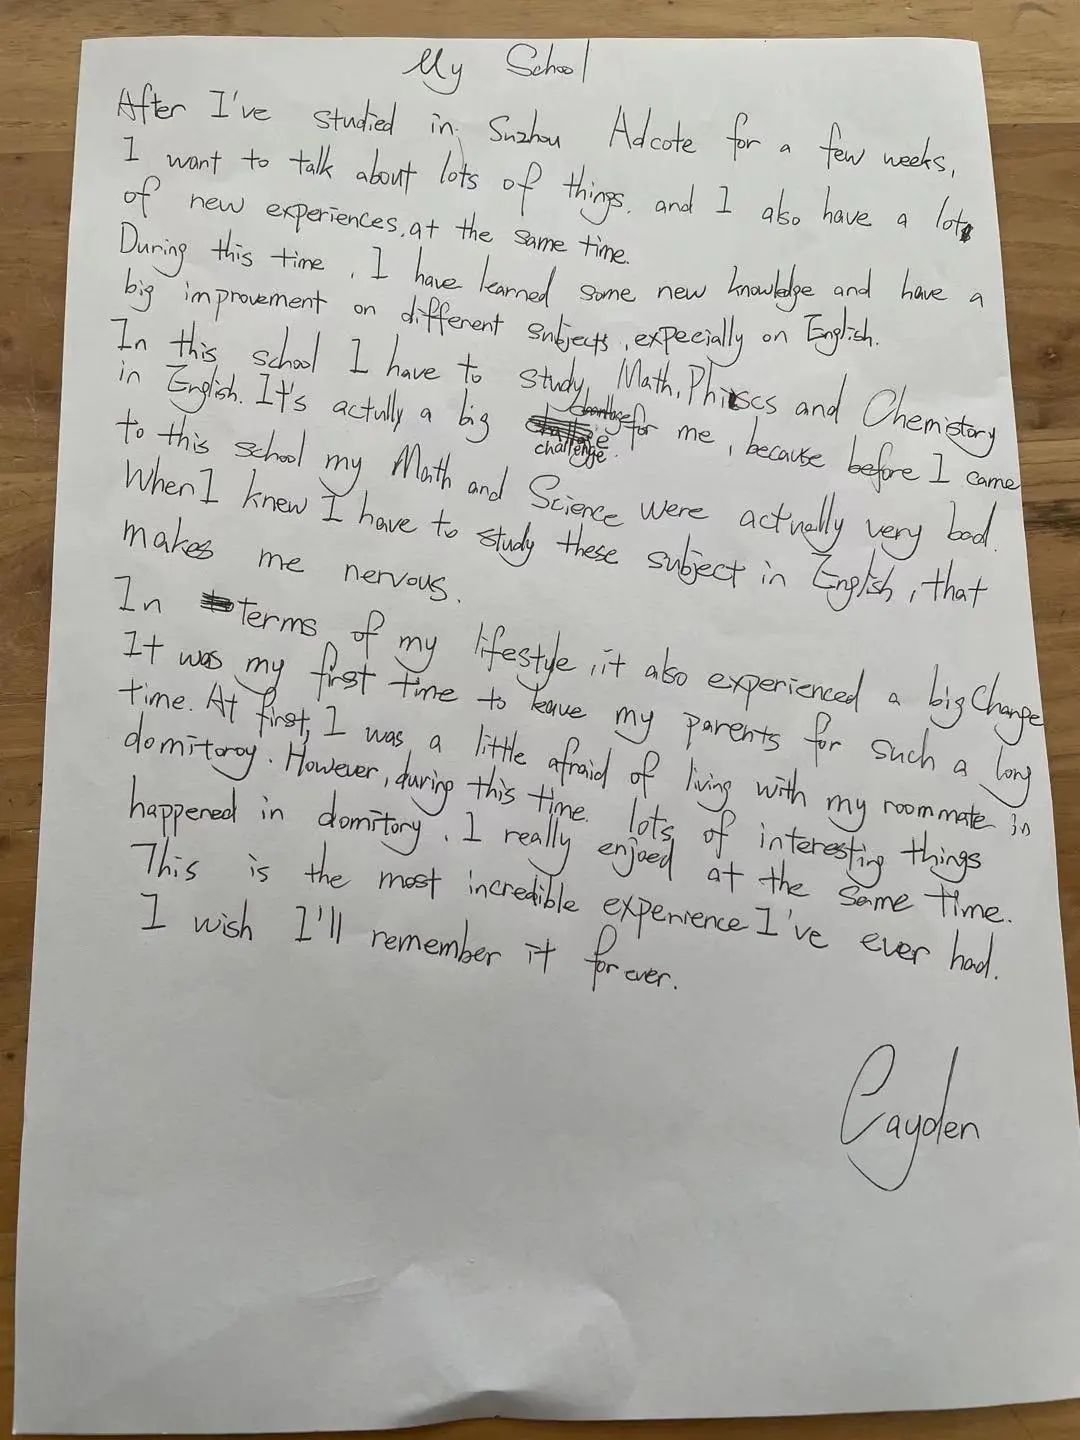 My School
After I've studied in Suzhou Adcote for a few weeks,
I want to talk about lots of things. and I also have a lot
of new experiences, at the same time.
During this time, I have learned some new knowledge and have a
big improvement on different subjects, expecially on English.
In this school I have to study Math, Phiscs and Chemistory
in English. It's actully a big challenge for me, because before I came
to this school my Math and Science were actually very bad.
When I knew I have to study these subject in English, that
makes me nervous.
In terms of my lifestyle, it also experienced a big Change
It was my first time to leave my parents for such a long
time. At first, I was a little afraid of living with my roommate in
domitoroy. However, during this time. lots of interesting things
happened in domitory. I really enjoed at the same time.
This is the most incredible experience I've ever had.
I wish I'll remember it for ever.
Cayden